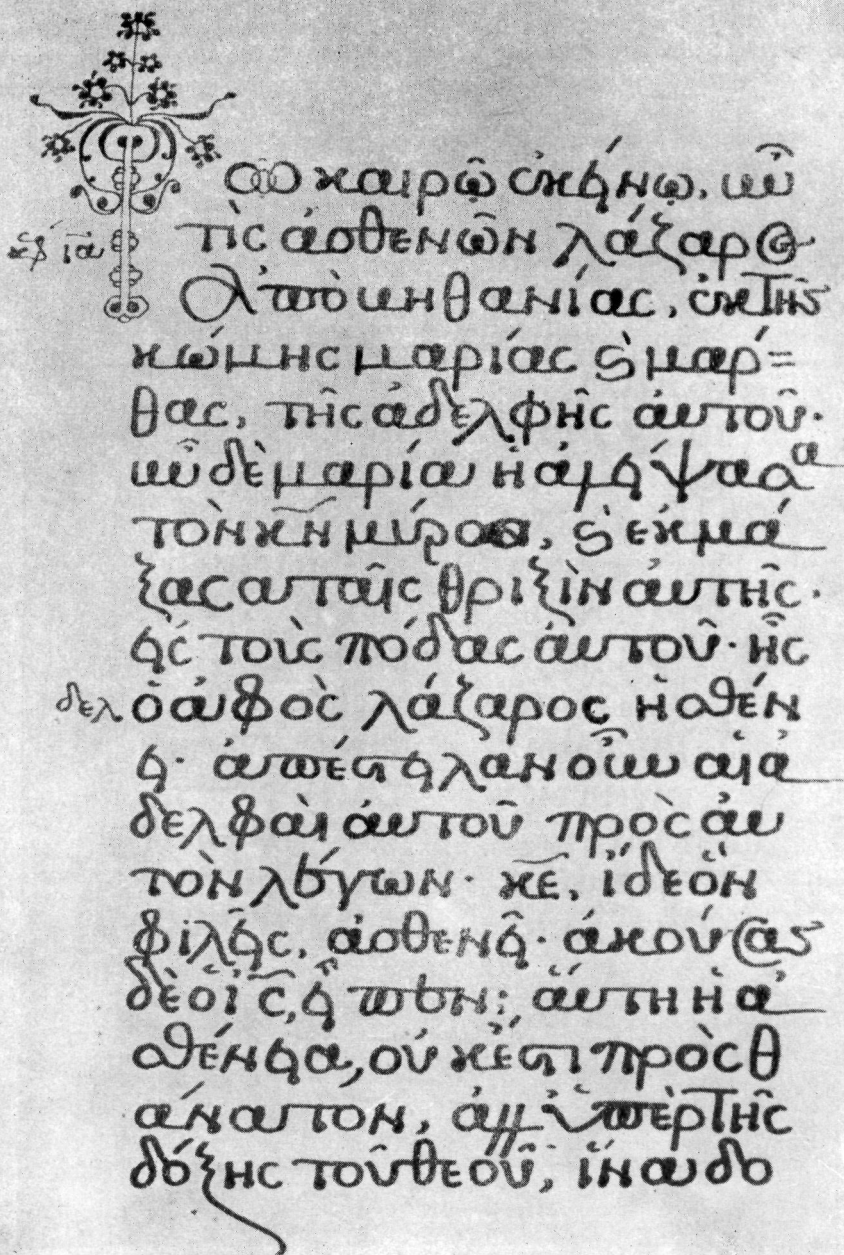 Τῷ καιρῷ ἐκείνῳ, ἦν
τὶς ἀσθενῶν λάζαρος
κεφ ια
ἀπὸ βηθανίας, ἐκ τῆς
κώμης μαρίας ϛ μάρ=
θας, τῆς ἀδελφῆς αὐτοῦ·
ἦν δὲ μαρία ἡ ἀλείψασα
τὸν κν̄ μύρω, ϛ ἐκμά
ξασα ταῖς θριξὶν αὐτῆς·
εἰς τοὺς πόδας αὐτοῦ· ἧς
δελ
ὁ αφὸς λάζαρος ἠσθέν
ει· ἀπέστειλαν οὖν αἱ ἀ
δελφαὶ αὐτοῦ πρὸς αὐ
τὸν λέγων· κε̄, ἴδε ὃν
φιλεῖς, ἀσθενεῖ· ἀκούσας
δὲ ὁ ις̄, εἶπεν· αὕτη ἡ ἀ
σθένεια, οὐκ ἔστι πρὸς θ
άνατον, ἀλλ' ὑπὲρ τῆς
δόξης τοῦ θεοῦ, ἵνα δο